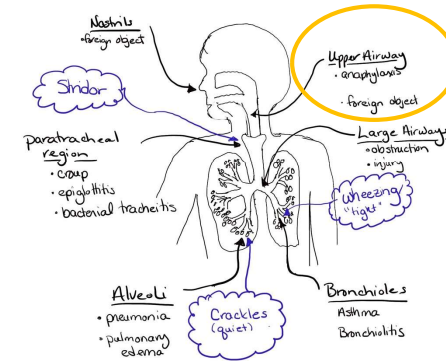 Nostrils
• foreign object
Stridor
Upper Airway
• anaphylaxis
• foreign object
paratracheal
region
• croup
• epiglottitis
• bacterial tracheitis
Large Airway
• obstruction
• injury
Wheezing
"tight"
Alveoli
• pneumonia
• pulmonary
edema
Crackles
(quiet)
Bronchioles
Asthma
Bronchiolitis